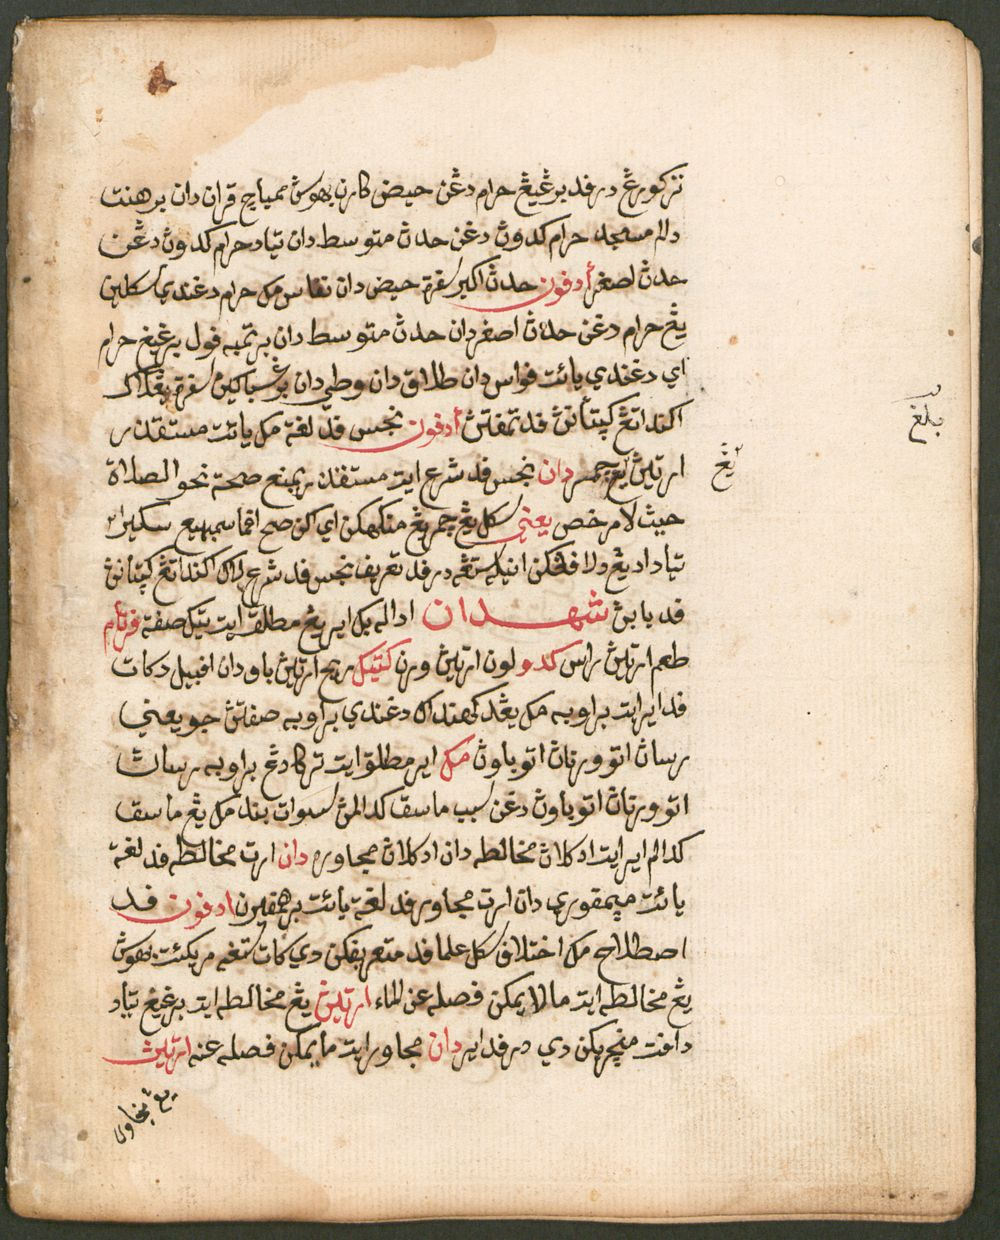 تركورڠ درفد برڠيڠ حرام دڠن حيض كارن بهوس ممباچ قران دان برهنت
دالم مسجد حرام كدون دڠن حدث متوسط دان تياد حرام كدون دڠن
حدث اصغر أدفون حدث اكبر سفرة حيض دان نفاس مك حرام دڠندي سكلين
يڠ حرام دڠن حدث اصغر دان حدث متوسط دان برتمبه فول برڠيڠ حرام
اي دڠندي يائت فواس دان طلاق دان وطي دان برغ سباكين سفرة يڠلاك
اكن داتڠ كپتأنڽ فد تمفتڽ أدفون نجس فد لغة مك يائت مستقذر
ارتيڽ يڠ چمر دان نجس فد شرع ايت مستقذر يمنع صحة نحو الصلاة
حيث لا مرخص يعني سكل يڠ چمر يڠ منكهكن اي اكن صح افما سمبهيڠ سكيرا٢
تياد اد يڠ دلافڠكن انيله ستڠه درفد تعريف نجس فد شرع لاك اكن داتڠ كپتأنڽ
فد بابڽ شهدان اداله بك اير يڠ مطلق ايت تيك صفة فرتام
طعم ارتيڽ راس كدو لون ارتيڽ ورن كتيك ريح ارتيڽ باو دان افبيل دكات
فد اير ايت براوبه مك يڠدكهنداك دڠندي براوبه صفاتڽ جو يعني
رساڽ اتو ورناڽ اتو باوڽ مك اير مطلق ايت تركادڠ براوبه رساڽ
اتو ورناڽ اتو باوڽ دڠن سبب ماسق كدالمڽ سوات بند مك يڠ ماسق
كدالم اير ايت ادكلاڽ مخالطه دان ادكلاڽ مجاوره دان ارت مخالطه فد لغة
يائت ميمفوري دان ارت مجاور فد لغة يائت برهمفيرن ادفون فد
اصطلاح مك اختلاف سكل علما فد متعريفكن دي كات ستڠه مريكئت بهوس
يڠ مخالطه ايت ما لا يمكن فصله عن الماء ارتيڽ يڠ مخالطه ايت برڠيڠ تياد
دافت منچريكن دي درفد اير دان مجاور ايت ما يمكن فصله عنه ارتيڽ
يڠ مجاور
يڠ
بلغ